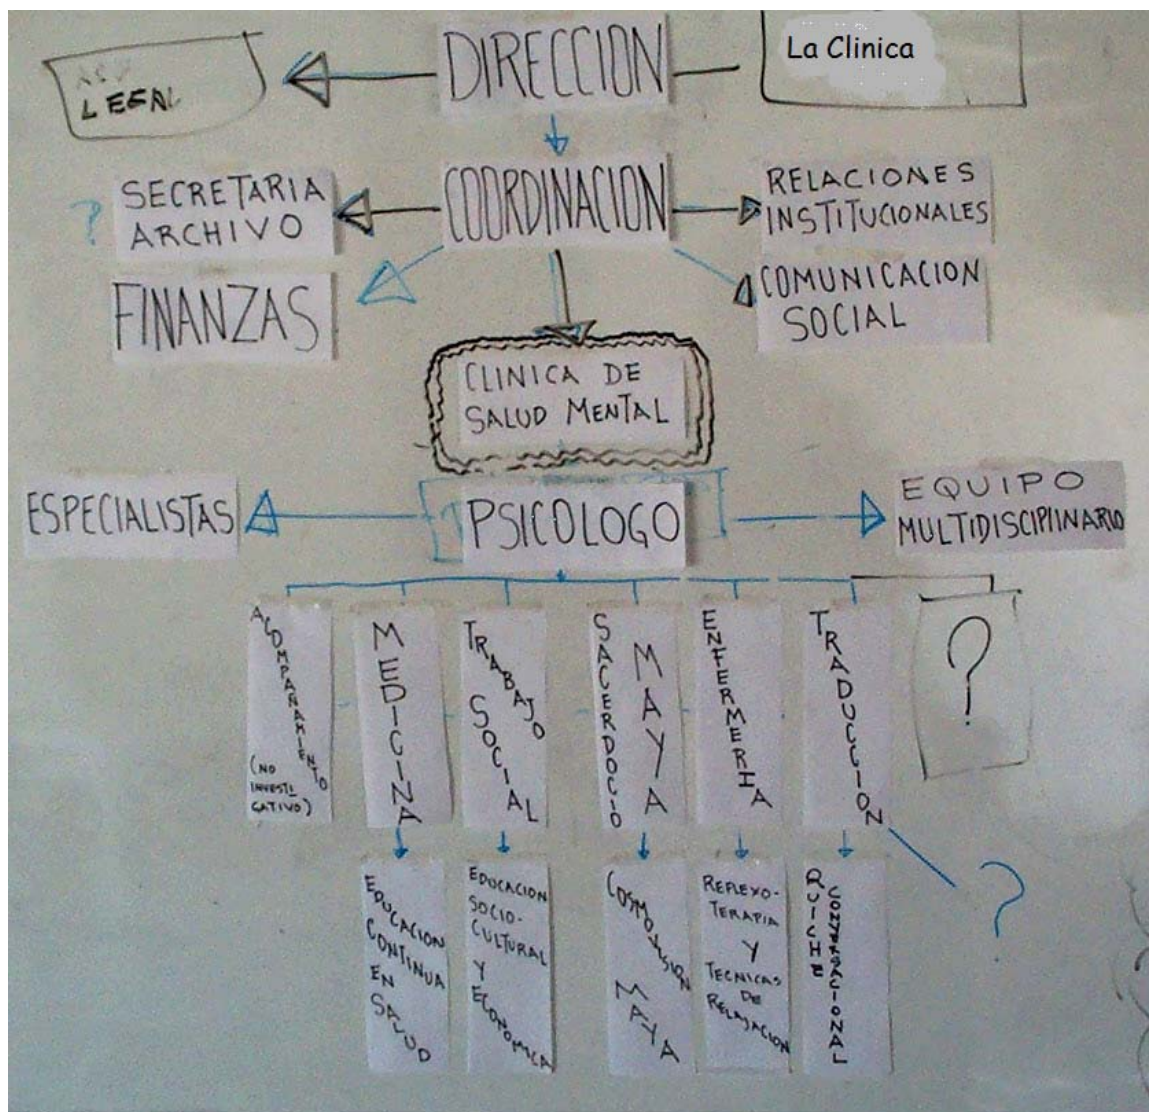 DIRECCION
La Clinica
SECRETARIA
ARCHIVO
COORDINACION
RELACIONES
INSTITUCIONALES
FINANZAS
COMUNICACION
SOCIAL
CLINICA DE
SALUD MENTAL
ESPECIALISTAS
PSICOLOGO
EQUIPO
MULTIDISCIPLINARIO
ACOMPAÑAMIENTO
(NO
INVESTI
GATIVO)
MEDICINA
TRABAJO
SOCIAL
SACERDOCIO
MAYA
ENFERMERIA
TRADUCCION
?
EDUCACION
CONTINUA
EN
SALUD
EDUCACION
SOCIO-
CULTURAL
Y
ECONOMICA
COSMOVISION
MAYA
REFLEXO-
TERAPIA
Y
TECNICAS
DE
RELAJACION
QUICHE
CONVERSACIONAL
?
?